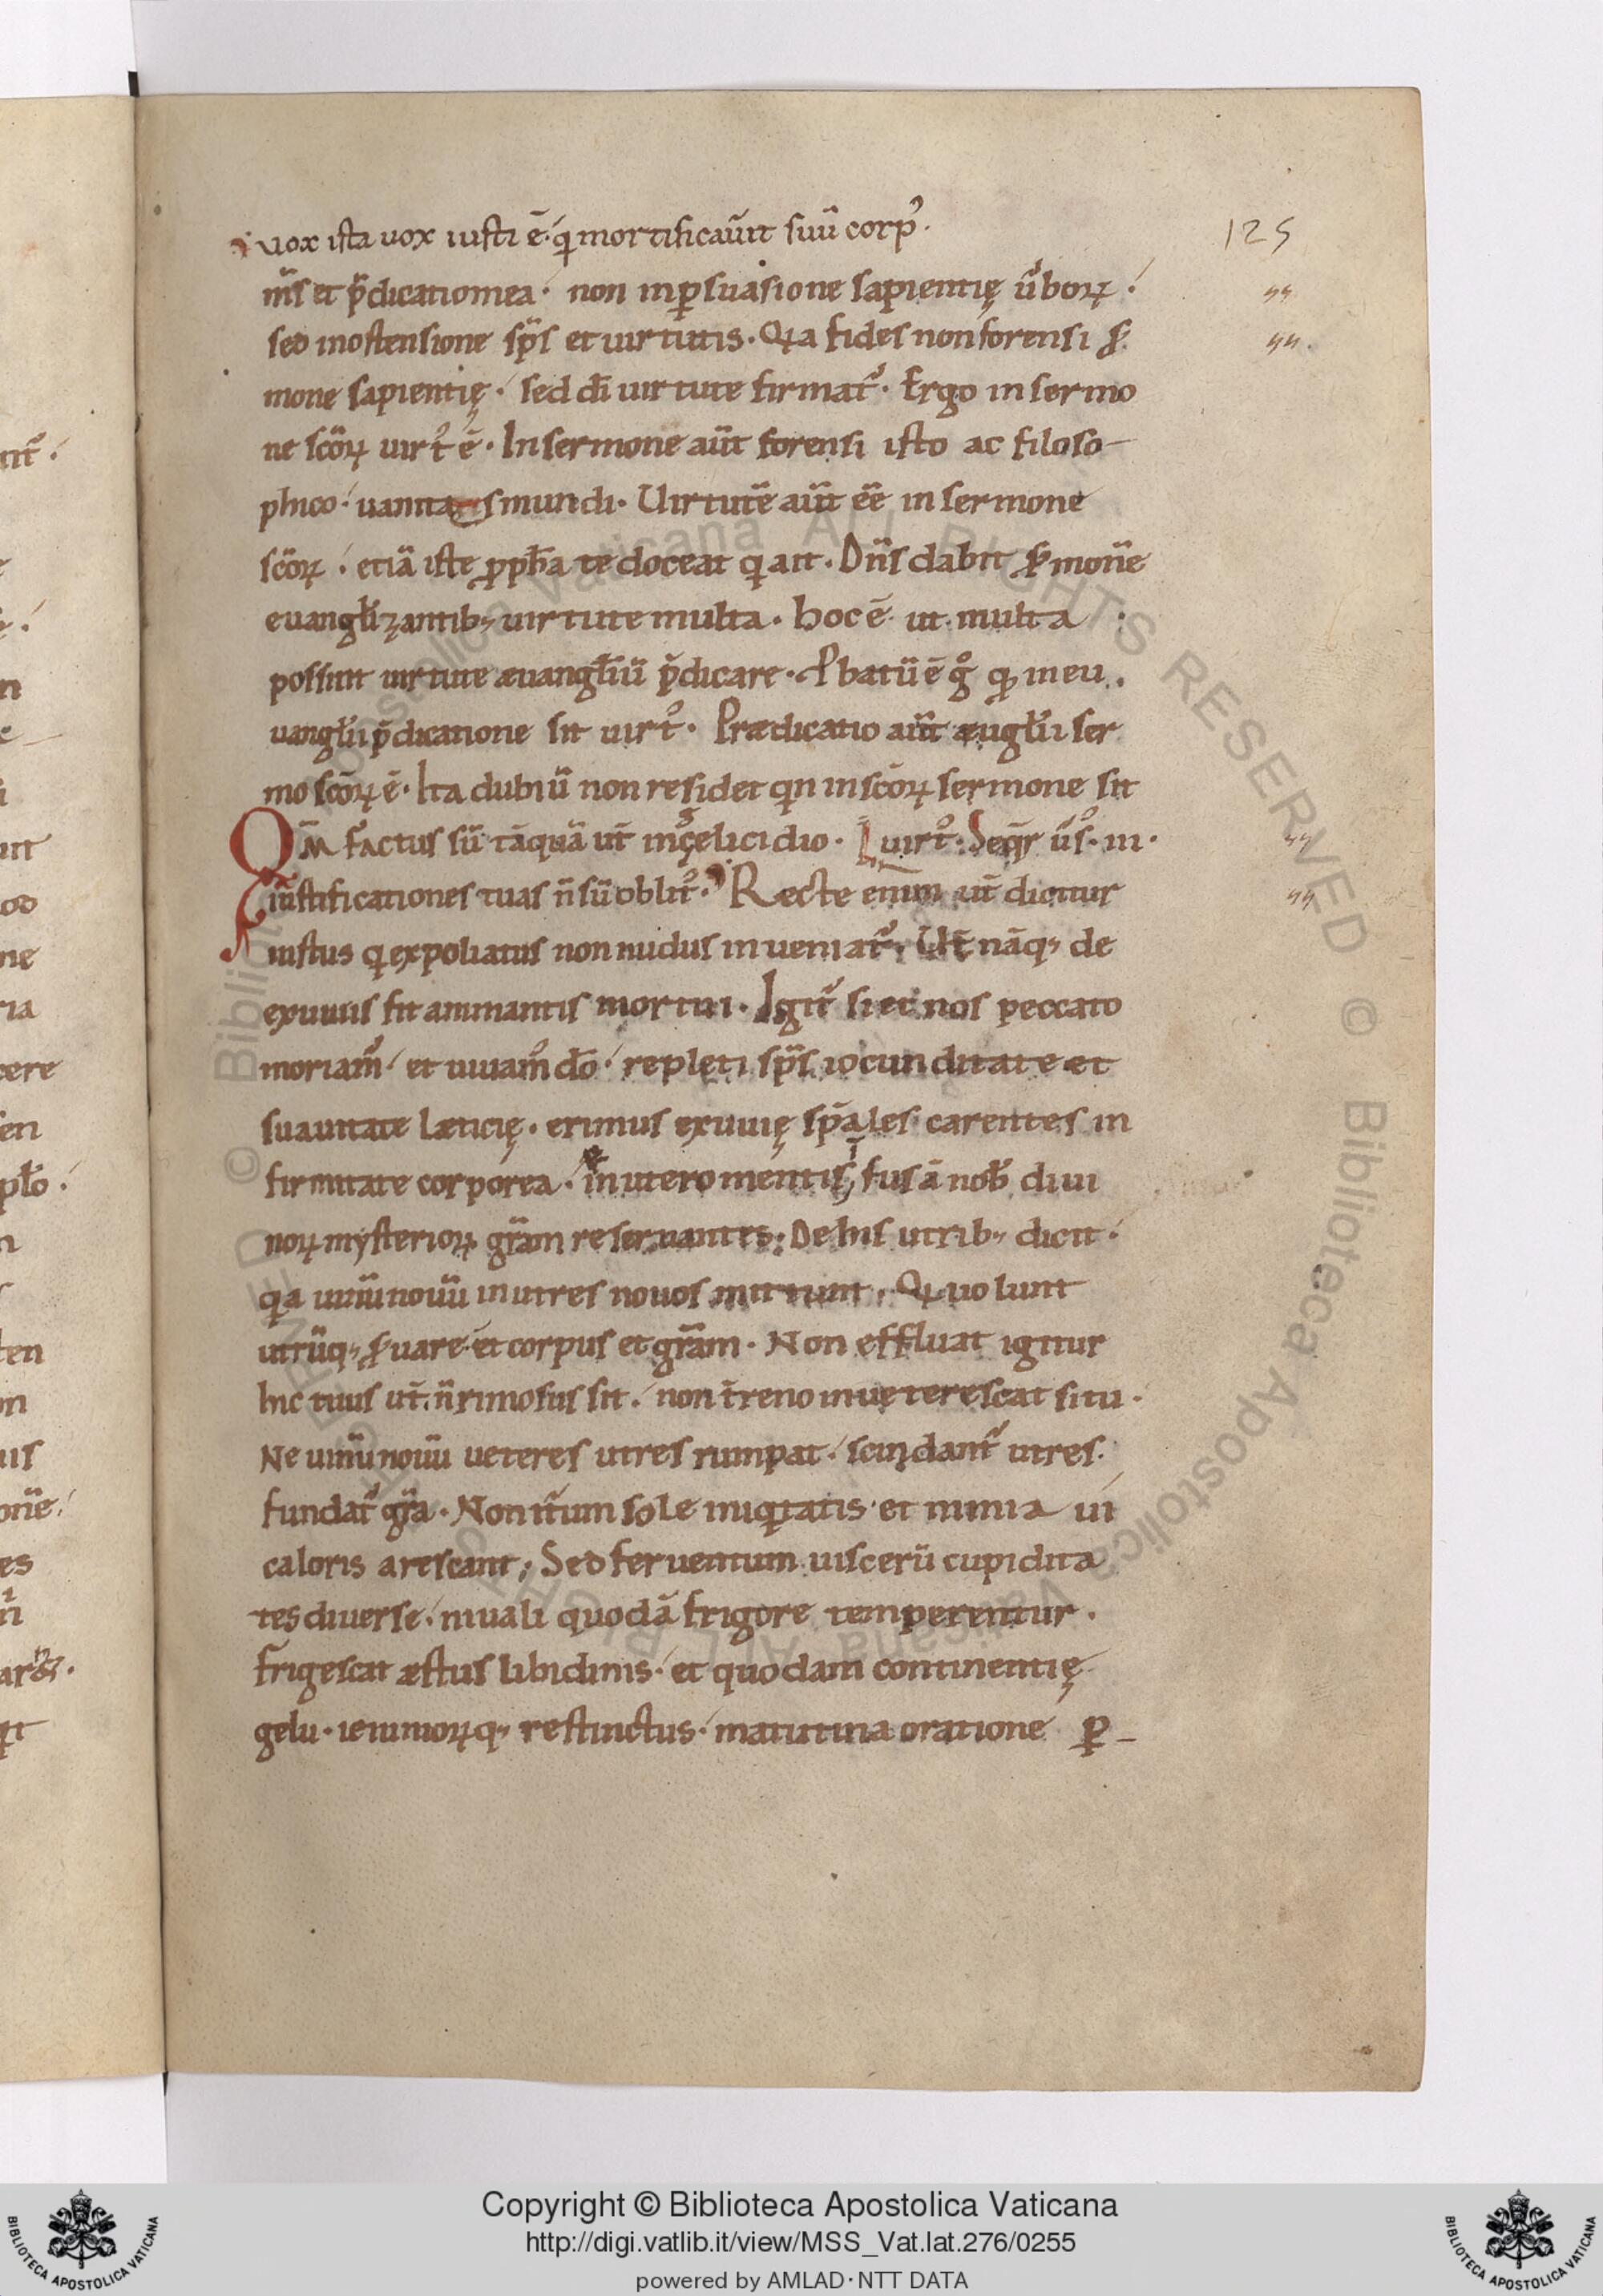 vox ista uox iusti ē· q mortificaūt suū corpꝰ·
125
m̄s et p̄dicatio mea· non in ꝑsuasione sapientię ũboꝝ·
sed in ostensione sp̄s et uirtutis· Qia fides non forensi ser
mone sapientię· sed di̅ uirtute firmatᷣ· Ergo in sermo
ne scōꝝ uirtꝰ ē· In sermone aūt forensi isto ac filoso-
phico· uanitas mundi· Uirtutē aūt eē in sermone
scōꝝ· etiā iste ꝓph̄a te doceat q ait· Dn̄s dabit sermonē
euangl̄izantibꝫ uirtute multa· hoc ē ut multa
possint uirtute æuangl̄iū p̄dicare· Ꝓbatū ē gͦ qͥ in eu
uangl̄ii p̄dicatione sit uirtꝰ· Prædicatio aūt æugl̄ii ser
mo scōꝝ ē· Ita dubiū non residet qn in scōꝝ sermone sit
Qm̄ factus sū tāquā ut̄ in gelicidio· uirtꝰ· Seqr̄ ũsꝰ· iii·
iustificationes tuas n̄ sū oblitꝰ· Recte enim ut̄ dicitur
iustus q expoliatus non nudus inueniatᷣ· Ut̄ nāqꝫ de
exuuiis fit animantis mortui· Igitᷣ si et nos peccato
moriamᷣ· et uiuamꝰ do̅· repleti sp̄s iocunditate et
suauitate læticię· erimus exuuię sp̄ales carentes in
firmitate corporea· in utero mentis īfusā nob̄ diui
noꝝ mysterioꝝ gr̄am reseruantes; De his utribꝫ dicit·
qa uinū nouū in utres nouos mittunt· Q uolunt
utrūqꝫ seruare et corpus et gr̄am· Non effluat igitur
hic tuus ut̄· n̄ rimosus sit· non t̄reno inueterescat situ·
Ne uinū nouū ueteres utres rumpat· scindantᷣ utres·
fundatᷣ gr̄a· Non it̄um sole iniqͥtatis et nimia ui
caloris arescant; Sed feruentum uiscerū cupidita
tes diuerse· niuali quodā frigore temperentur·
Frigescat æstus libidinis· et quodam continentię
gelu· ieiunioꝝqꝫ restinctus· matutina oratione ꝑ-
Copyright © Biblioteca Apostolica Vaticana
http://digi.vatlib.it/view/MSS_Vat.lat.276/0255
powered by AMLAD·NTT DATA